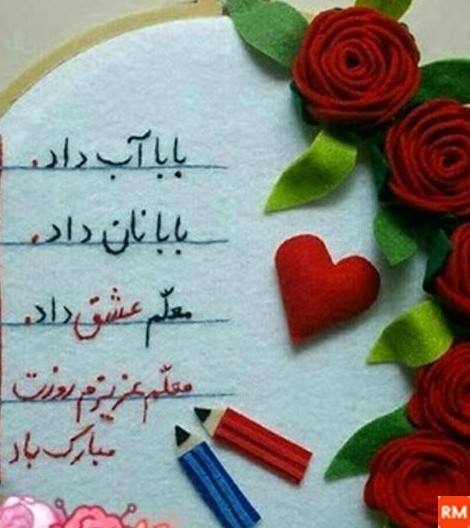 بابا آب داد.
بابا نان داد.
معلّم عشق داد.
معلّم عزیزم روزت
مبارک باد
RM